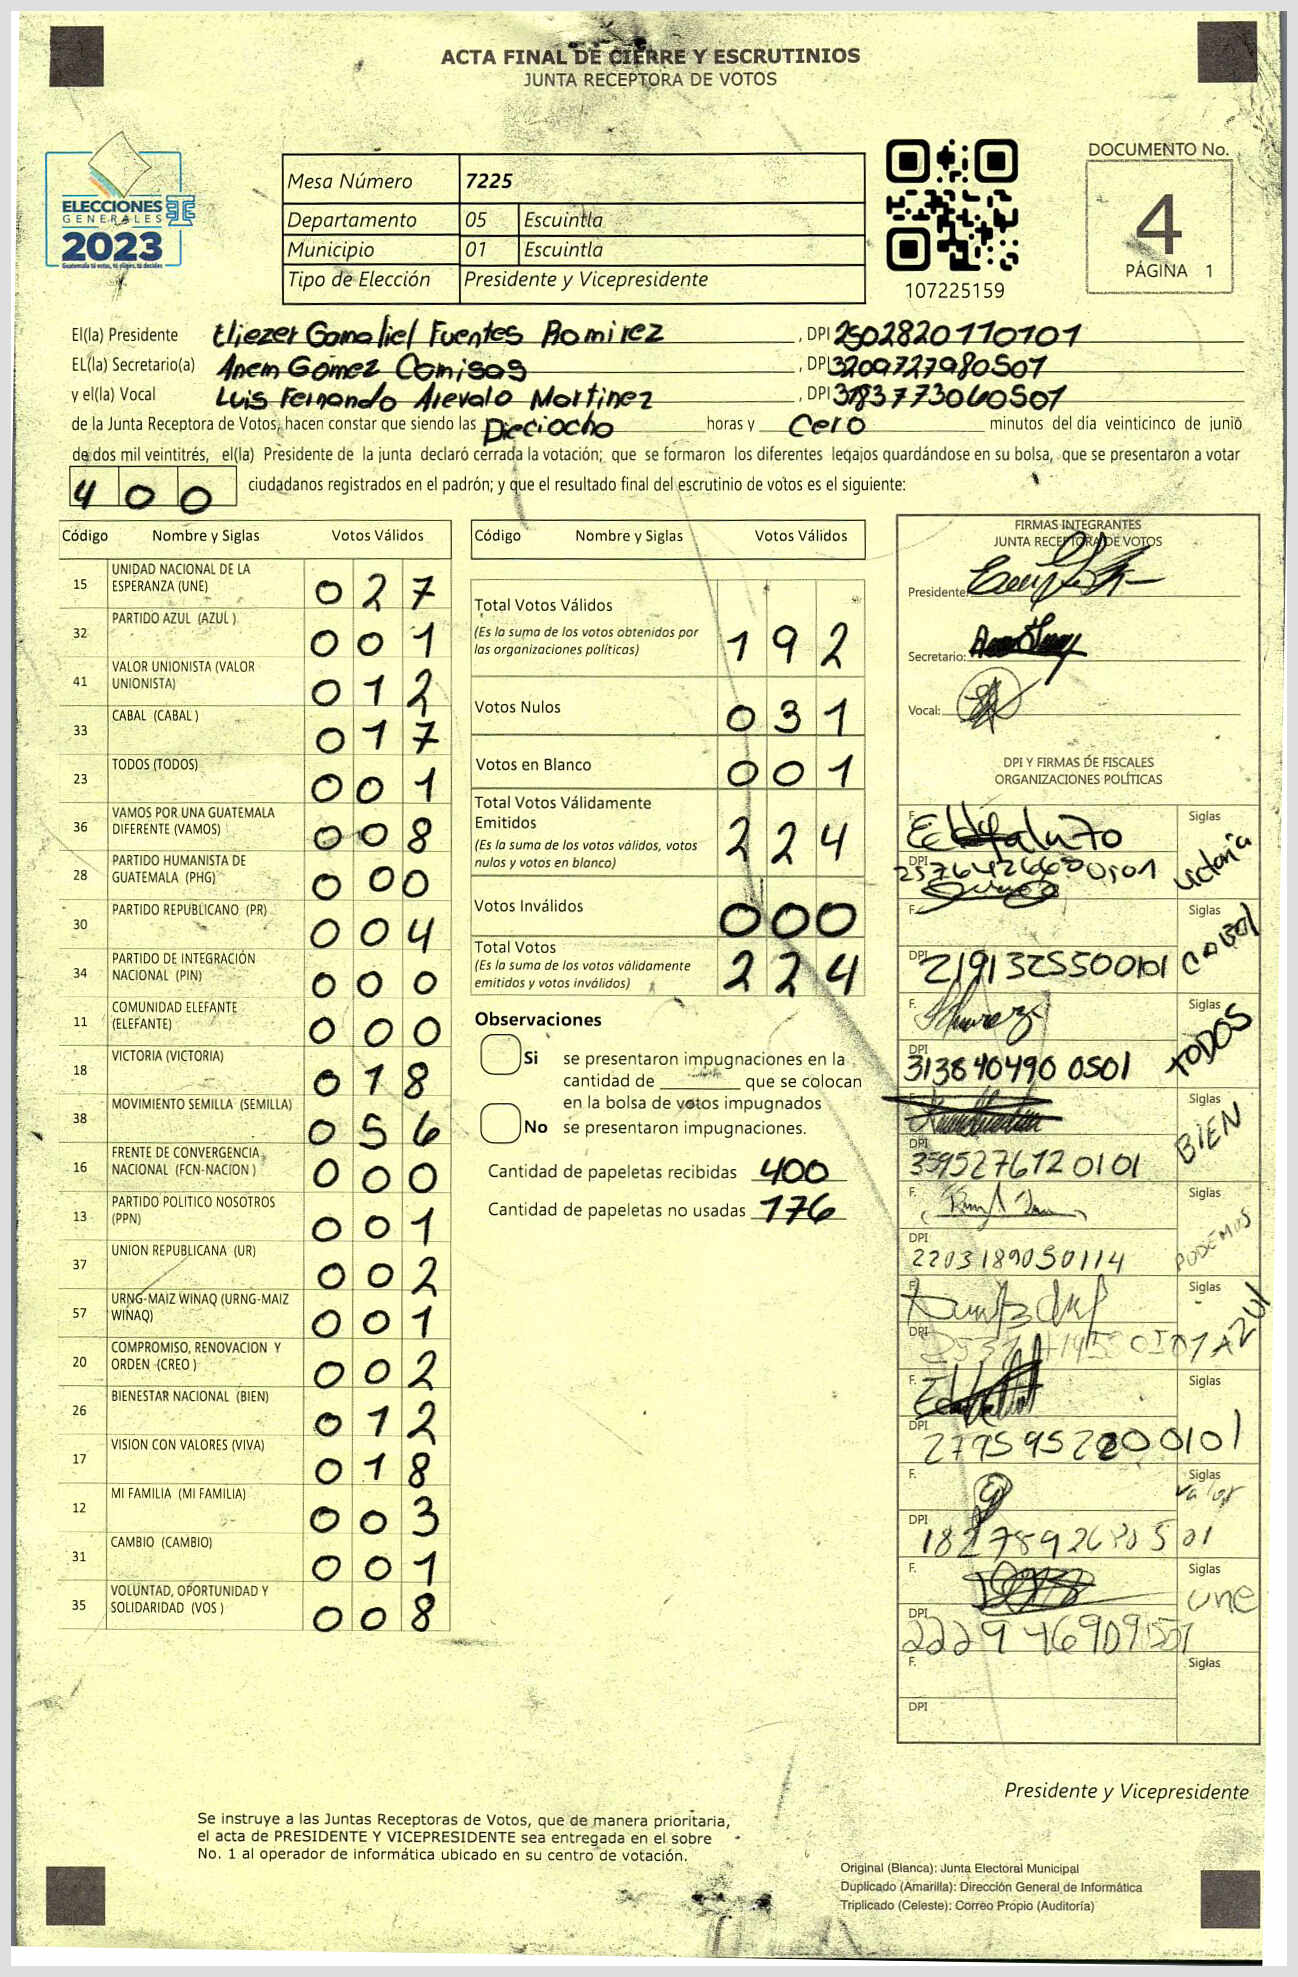 ACTA FINAL DE CIERRE Y ESCRUTINIOS
JUNTA RECEPTORA DE VOTOS
ELECCIONES
GENERALES
2023
Guatemala tú votas, tú eliges, tú decides
Mesa Número 7225
Departamento 05 Escuintla
Municipio 01 Escuintla
Tipo de Elección Presidente y Vicepresidente
107225159
DOCUMENTO No.
4
PÁGINA 1
El(la) Presidente Eliezer Gamaliel Fuentes Ramirez, DPI 2502820110101
EL(la) Secretario(a) Anem Gómez Camisas, DPI 3209727980501
y el(la) Vocal Luis Fernando Arevalo Martinez, DPI 3183773060501
de la Junta Receptora de Votos, hacen constar que siendo las Dieciocho horas y Cero minutos del día veinticinco de junio
de dos mil veintitrés, el(la) Presidente de la junta declaró cerrada la votación; que se formaron los diferentes legajos guardándose en su bolsa, que se presentaron a votar
400 ciudadanos registrados en el padrón; y que el resultado final del escrutinio de votos es el siguiente:
Código Nombre y Siglas Votos Válidos
15 UNIDAD NACIONAL DE LA ESPERANZA (UNE) 027
32 PARTIDO AZUL (AZUL ) 001
41 VALOR UNIONISTA (VALOR UNIONISTA) 012
33 CABAL (CABAL ) 017
23 TODOS (TODOS) 001
36 VAMOS POR UNA GUATEMALA DIFERENTE (VAMOS) 008
28 PARTIDO HUMANISTA DE GUATEMALA (PHG) 000
30 PARTIDO REPUBLICANO (PR) 004
34 PARTIDO DE INTEGRACIÓN NACIONAL (PIN) 000
11 COMUNIDAD ELEFANTE (ELEFANTE) 000
18 VICTORIA (VICTORIA) 018
38 MOVIMIENTO SEMILLA (SEMILLA) 056
16 FRENTE DE CONVERGENCIA NACIONAL (FCN-NACION ) 000
13 PARTIDO POLITICO NOSOTROS (PPN) 001
37 UNION REPUBLICANA (UR) 002
57 URNG-MAIZ WINAQ (URNG-MAIZ WINAQ) 001
20 COMPROMISO, RENOVACION Y ORDEN (CREO ) 002
26 BIENESTAR NACIONAL (BIEN) 012
17 VISION CON VALORES (VIVA) 018
12 MI FAMILIA (MI FAMILIA) 003
31 CAMBIO (CAMBIO) 001
35 VOLUNTAD, OPORTUNIDAD Y SOLIDARIDAD (VOS ) 008
Código Nombre y Siglas Votos Válidos
Total Votos Válidos
(Es la suma de los votos obtenidos por
las organizaciones políticas) 192
Votos Nulos 031
Votos en Blanco 001
Total Votos Válidamente
Emitidos
(Es la suma de los votos válidos, votos
nulos y votos en blanco) 224
Votos Inválidos 000
Total Votos
(Es la suma de los votos válidamente
emitidos y votos inválidos) 224
Observaciones
Si se presentaron impugnaciones en la
cantidad de ________ que se colocan
en la bolsa de votos impugnados
No se presentaron impugnaciones.
Cantidad de papeletas recibidas 400
Cantidad de papeletas no usadas 176
FIRMAS INTEGRANTES
JUNTA RECEPTORA DE VOTOS
Presidente:
Secretario:
Vocal:
DPI Y FIRMAS DE FISCALES
ORGANIZACIONES POLÍTICAS
F. Siglas
DPI Victoria
F. Siglas
DPI 2191325500101 CABAL
F. Siglas
DPI 3138404900501 TODOS
F. Siglas
DPI 3595276120101 BIEN
F. Siglas
DPI 2203189050114 PODEMOS
F. Siglas
DPI AZUL
F. Siglas
DPI 2795952200101
F. Siglas
Valor
DPI
F. Siglas
une
DPI
F. Siglas
DPI
Presidente y Vicepresidente
Se instruye a las Juntas Receptoras de Votos, que de manera prioritaria,
el acta de PRESIDENTE Y VICEPRESIDENTE sea entregada en el sobre
No. 1 al operador de informática ubicado en su centro de votación.
Original (Blanca): Junta Electoral Municipal
Duplicado (Amarilla): Dirección General de Informática
Triplicado (Celeste): Correo Propio (Auditoría)